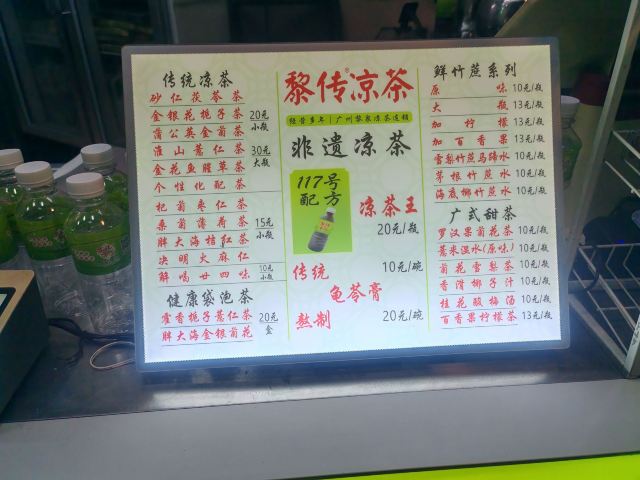 传统凉茶
砂仁茯苓茶
金银花栀子茶 20元
蒲公英金菊茶 小瓶
淮山薏仁茶 30元
金花鱼腥草茶 大瓶
个性化配茶
杞菊枣仁茶
桑菊薄荷茶 15元
胖大海桔红茶 小瓶
决明火麻仁
解喝廿四味 10元
小瓶
健康袋泡茶
藿香栀子薏仁茶 20元
胖大海金银菊花 盒
黎传凉茶
广州黎泉凉茶连锁
非遗凉茶
117号
配方
凉茶王
20元/瓶
传统 10元/碗
龟苓膏
熬制 20元/碗
鲜竹蔗系列
原味 10元/瓶
大瓶 13元/瓶
加柠檬 13元/瓶
加百香果 13元/瓶
雪梨竹蔗马蹄水 10元/瓶
茅根竹蔗水 10元/瓶
海底椰竹蔗水 10元/瓶
广式甜茶
罗汉果菊花茶 10元/瓶
薏米湿水(原味) 10元/瓶
菊花雪梨茶 10元/瓶
香滑椰子汁 10元/瓶
桂花酸梅汤 10元/瓶
百香果柠檬茶 13元/瓶